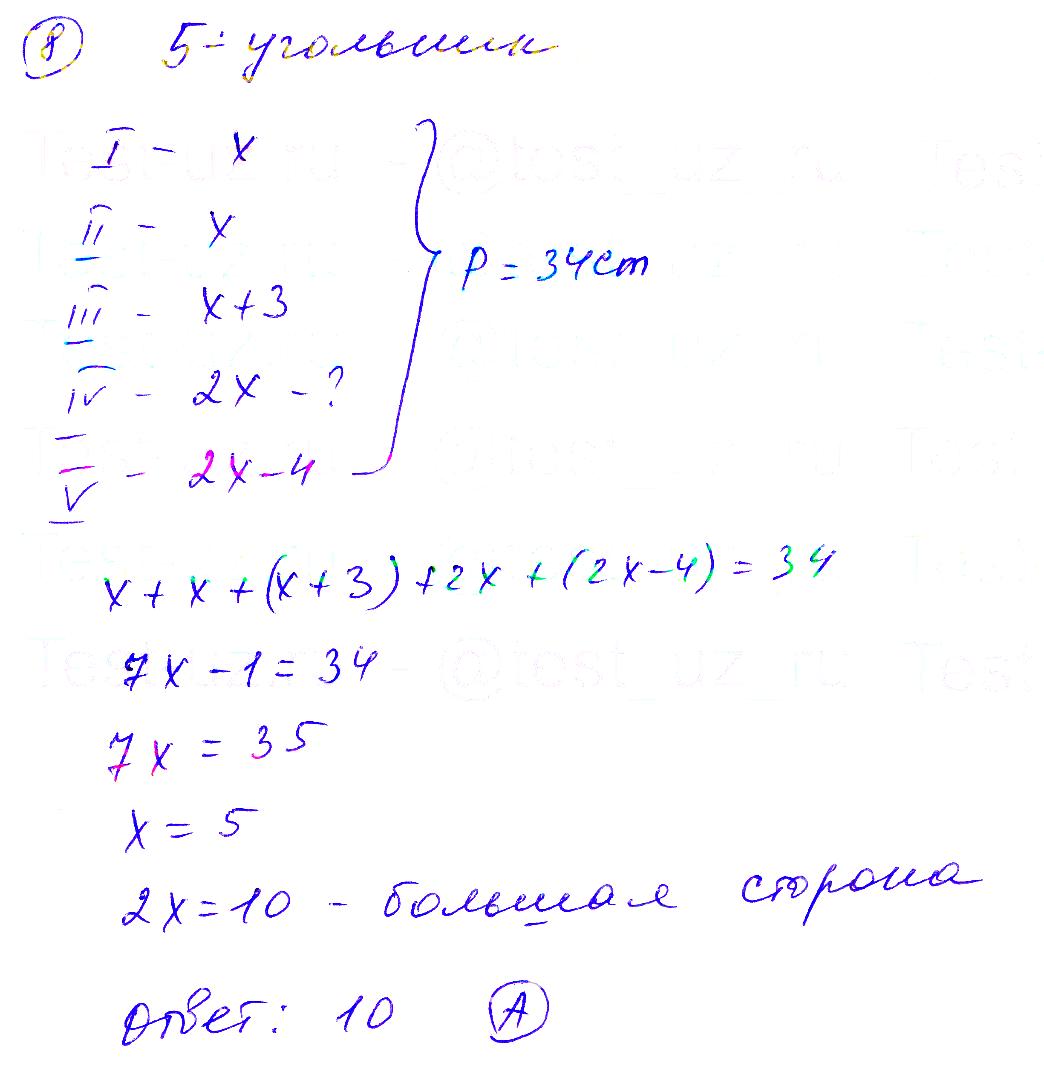 8 5-угольник
I - x
II - x
III - x+3
IV - 2x - ?
V - 2x-4
P = 34cm
x + x + (x+3) + 2x + (2x-4) = 34
7x - 1 = 34
7x = 35
x = 5
2x = 10 - большая сторона
Ответ: 10 A